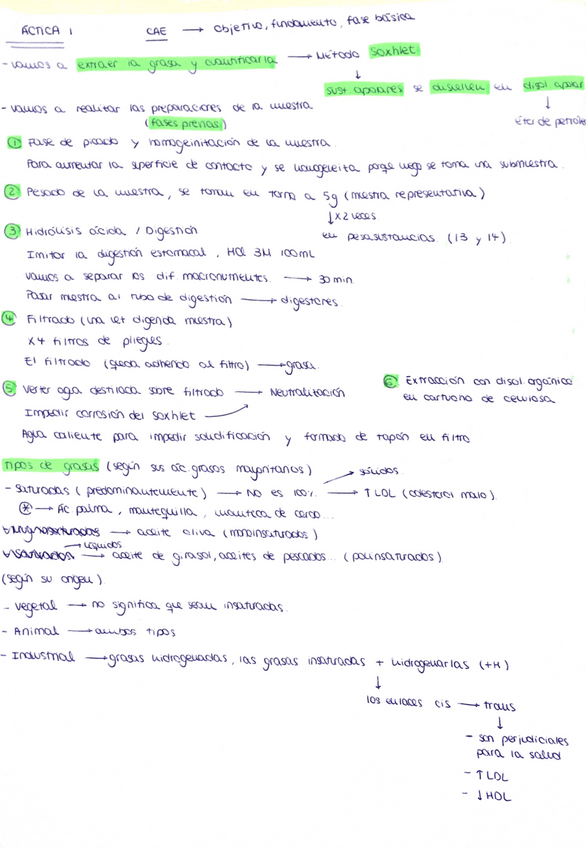 ÁCTICA 1 CAE → objetivo, fundamento, fase básica
- vamos a extraer la grasa y cuantificarla → Método Soxhlet
↓
sust apolares se disuelven en disol apolar
↓
Éter de petróleo
- vamos a realizar las preparaciones de la muestra
(fases previas)
① Fase de picado y homogeinización de la muestra.
Para aumentar la superficie de contacto y se homogeneiza porque luego se toma una submuestra.
② Pesado de la muestra, se toman en torno a 5g (muestra representativa)
↓ x 2 veces
en pesasustancias (13 y 14)
③ Hidrólisis ácida / Digestión
Imitar la digestión estomacal, HCl 3M 100mL
Vamos a separar los dif. macronutrientes. → 30 min
Pasar muestra al tubo de digestión → digestores
④ Filtrado (una vez digerida muestra)
x4 filtros de pliegues.
El filtrado (queda adherido al filtro) → grasa
⑤ Verter agua destilada sobre filtrado → Neutralización
Impedir corrosión del soxhlet
Agua caliente para impedir solidificación y formado de tapón en filtro
⑥ Extracción con disol orgánico
en cartucho de celulosa
Tipos de grasas (según sus ác. grasos mayoritarios) → sólidos
- Saturadas (predominantemente) → NO es 100% → ↑ LDL (colesterol malo).
* → Ác palma, mantequilla, manteca de cerdo...
→ aceite oliva (monoinsaturados)
líquidos
→ aceite de girasol, aceites de pescados... (polinsaturados)
(según su origen)
- Vegetal → no significa que sean insaturadas.
- Animal → ambos tipos
- Industrial → grasas hidrogenadas, las grasas insaturadas + hidrogenarlas (+H)
↓
los enlaces cis → trans
↓
- son perjudiciales
para la salud
- ↑ LDL
- ↓ HDL